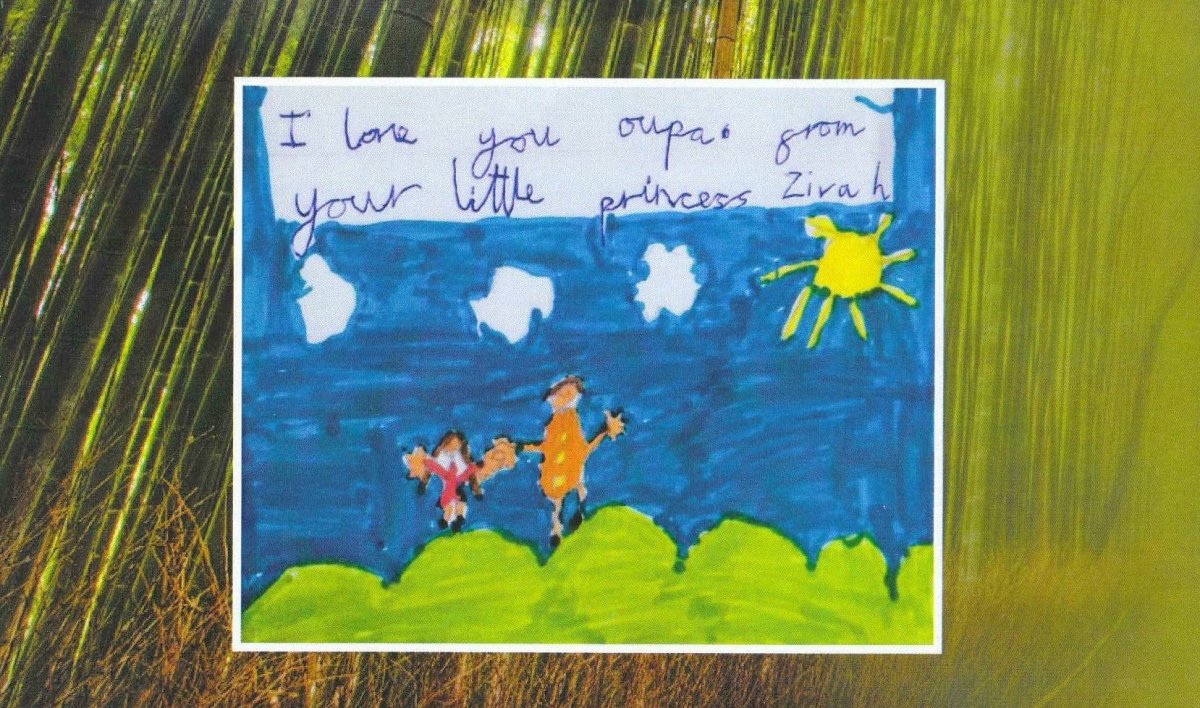 I love you oupa. from
your little princess Zivah